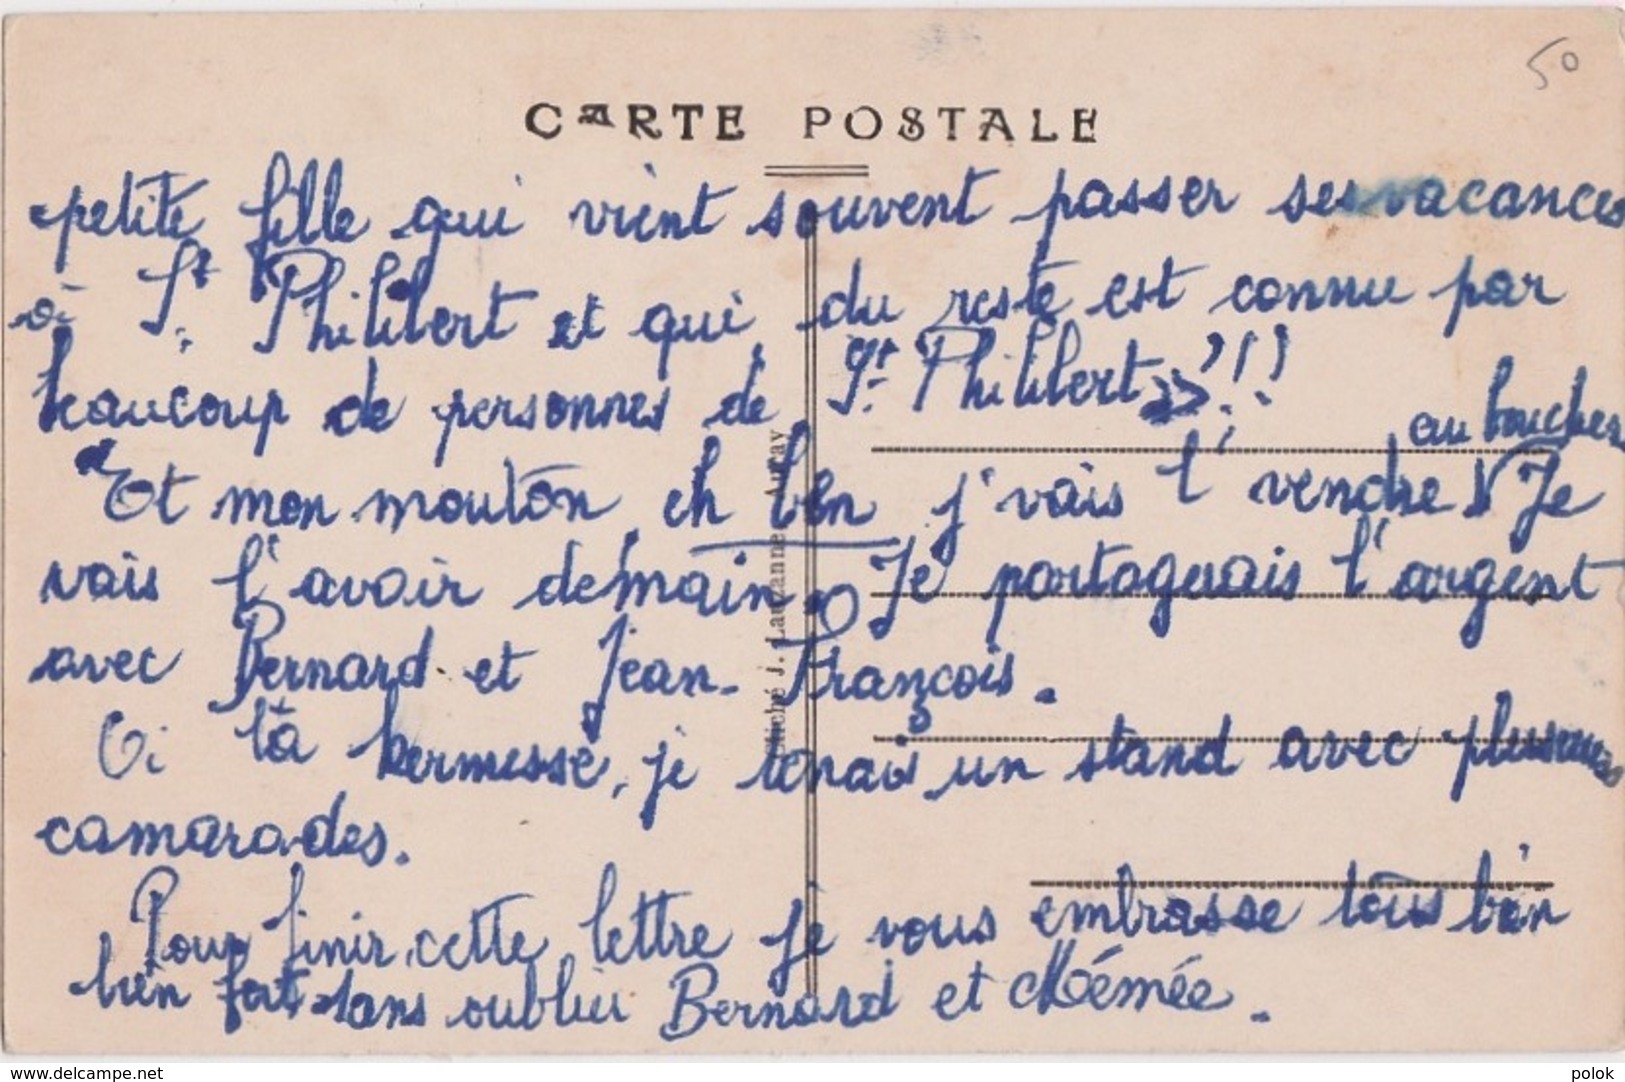 50
CARTE POSTALE
petite fille qui vient souvent passer ses vacances
à St Philibert et qui du reste est connu par
beaucoup de personnes de St Philibert »!!!
au boucher
Et mon mouton, eh ben j'vais l'vendre Je
vais l'avoir demain. Je partagerais l'argent
avec Bernard et Jean-François.
A la kermesse, je tenais un stand avec plusieurs
camarades.
Pour finir cette lettre je vous embrasse tous bien
bien fort sans oublier Bernard et Mémée.
Cliché J. Lauzanne Auray
delcampe.net
polok